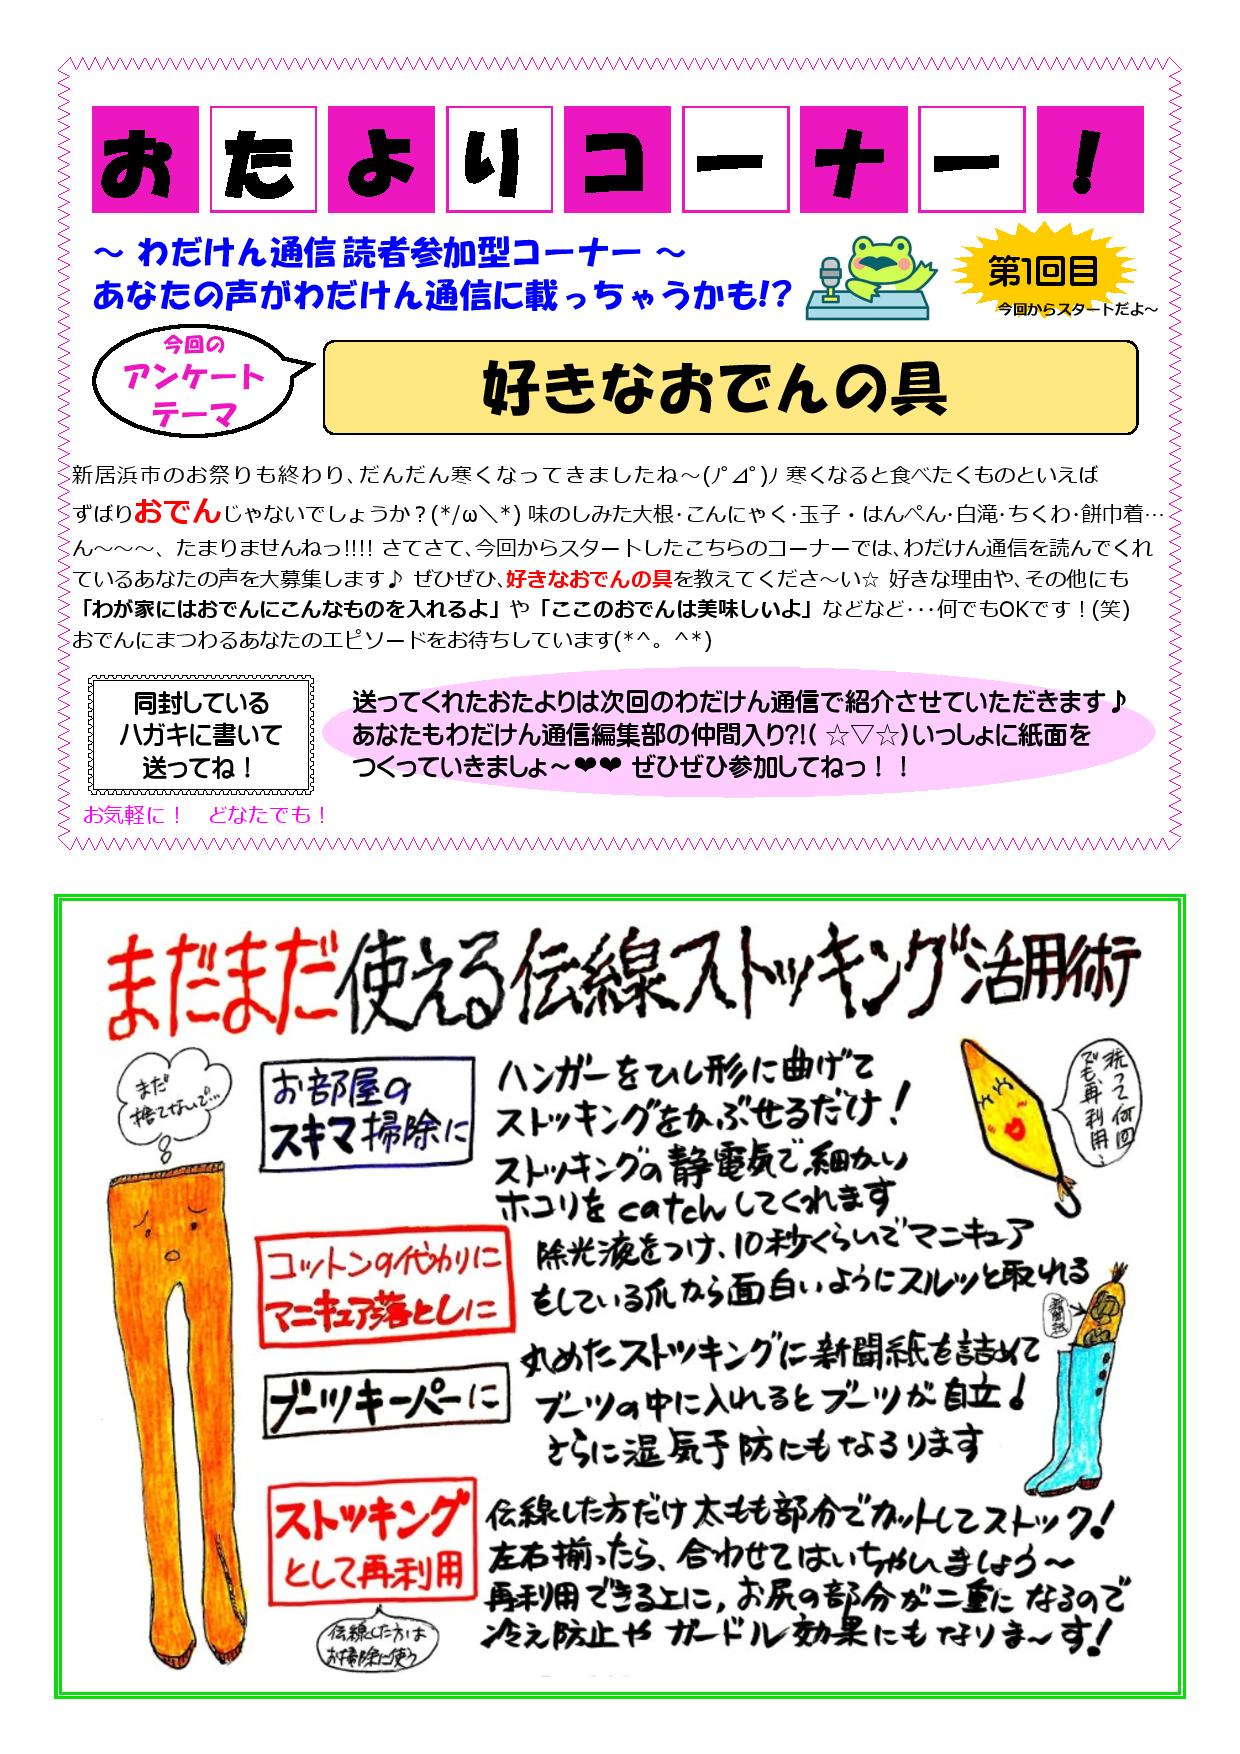 おたよりコーナー！
～ わだけん通信 読者参加型コーナー ～
あなたの声がわだけん通信に載っちゃうかも!?
第1回目
今回からスタートだよ～
今回の
アンケート
テーマ
好きなおでんの具
新居浜市のお祭りも終わり､だんだん寒くなってきましたね～(ﾉﾟ⊿ﾟ)ﾉ 寒くなると食べたくものといえば
ずばりおでんじゃないでしょうか？(*/ω＼*) 味のしみた大根･こんにゃく･玉子・はんぺん･白滝･ちくわ･餅巾着…
ん～～～、たまりませんねっ!!!! さてさて､今回からスタートしたこちらのコーナーでは､わだけん通信を読んでくれ
ているあなたの声を大募集します♪ ぜひぜひ､好きなおでんの具を教えてくださ～い☆ 好きな理由や､その他にも
「わが家にはおでんにこんなものを入れるよ」や「ここのおでんは美味しいよ」などなど･･･何でもOKです！(笑)
おでんにまつわるあなたのエピソードをお待ちしています(*^。^*)
同封している
ハガキに書いて
送ってね！
お気軽に！　どなたでも！
送ってくれたおたよりは次回のわだけん通信で紹介させていただきます♪
あなたもわだけん通信編集部の仲間入り?!( ☆▽☆)いっしょに紙面を
つくっていきましょ～❤❤ ぜひぜひ参加してねっ！！
まだまだ使える伝線ストッキング活用術
まだ
捨てないで…
お部屋の
スキマ掃除に
ハンガーをひし形に曲げて
ストッキングをかぶせるだけ！
ストッキングの静電気で細かい
ホコリをcatchしてくれます
洗って何回
でも再利用♪
コットンの代わりに
マニキュア落としに
除光液をつけ、10秒くらいでマニキュア
をしている爪から面白いようにスルッと取れる
新聞紙
ブーツキーパーに
丸めたストッキングに新聞紙を詰めて
ブーツの中に入れるとブーツが自立！
さらに湿気予防にもなるります
ストッキング
として再利用
伝線した方は
お掃除に使う
伝線した方だけ太もも部分でカットしてストック！
左右揃ったら、合わせてはいちゃいましょう～
再利用できる上に，お尻の部分が二重になるので
冷え防止やガードル効果にもなりま～す！